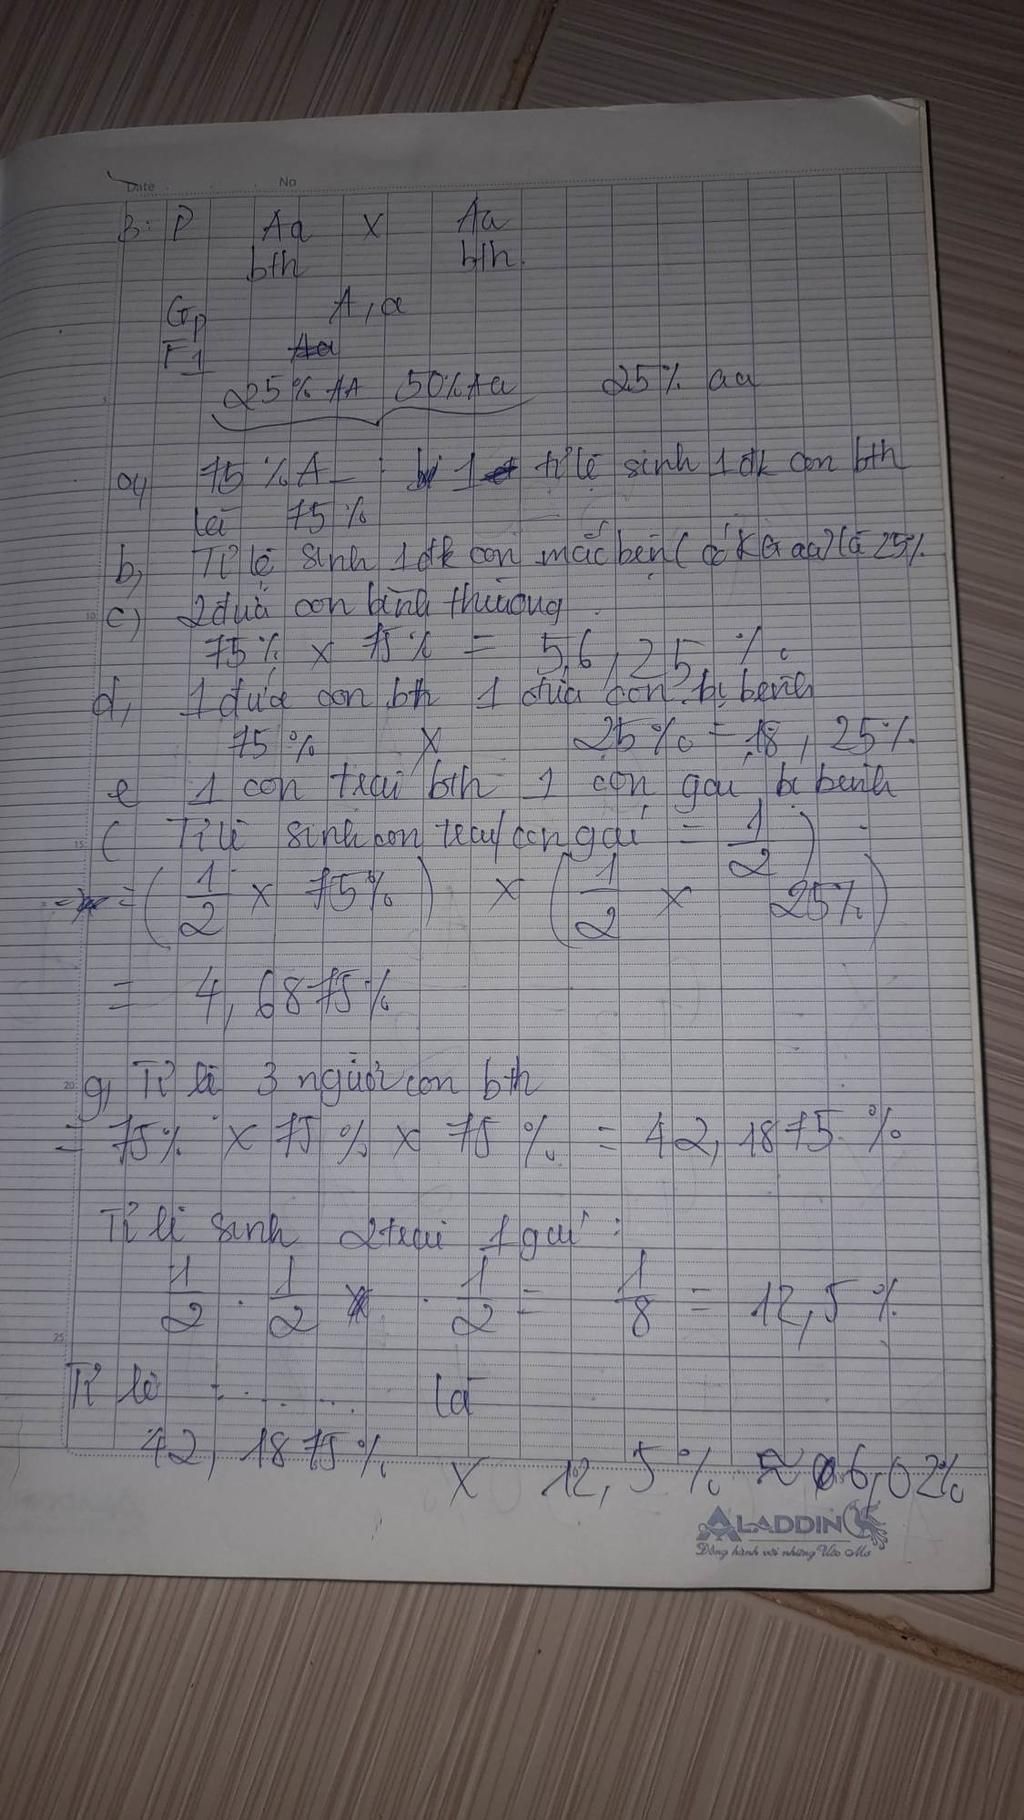 Date No
3: P Aa x Aa
bth bth
Gp A, a
F1 Aa
25% AA 50% Aa 25% aa
a, 75% A_: tỉ lệ sinh 1 đk con bth
là 75%
b, Tỉ lệ sinh 1 đk con mắc bện (có KG aa) là 25%
c) 2 đuá con bình thường
75% x 75% = 56,25%
d, 1 đứa con bth 1 đứa con bị bệnh
75% x 25% = 18,25%
e 1 con trai bth 1 con gái bị bệnh
15 ( Tỉ lệ sinh con trai/con gái = 1/2 )
= (1/2 x 75%) x (1/2 x 25%)
= 4,6875%
20 g, Tỉ lệ 3 người con bth
= 75% x 75% x 75% = 42,1875%
Tỉ lệ sinh 2 trai 1 gái :
1/2 . 1/2 . 1/2 = 1/8 = 12,5%
25
Tỉ lệ : ........ là
42,1875% x 12,5% ≈ 6,02%
ALADDIN
Đồng hành với những Ước Mơ